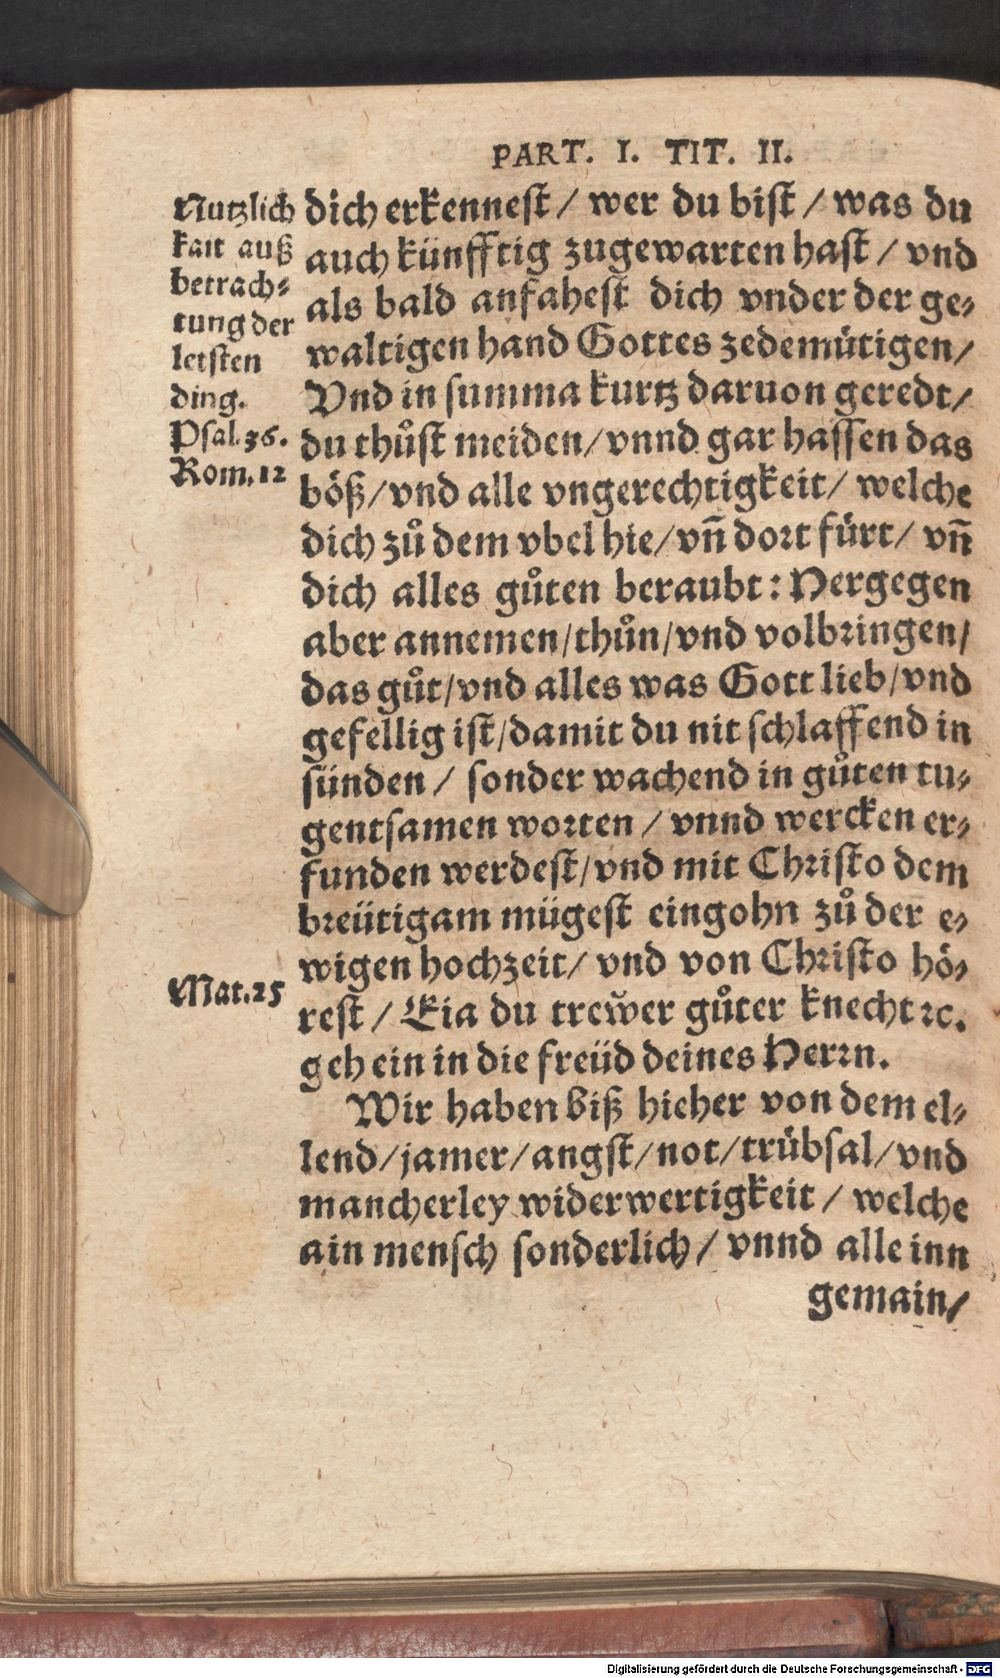 PART. I. TIT. II.
Nutzlich
kait auß
betrach⸗
tung der
letsten
ding.
Psal.36.
Rom.12
dich erkennest/ wer du bist/ was du
auch künfftig zugewarten hast/ vnd
als bald anfahest dich vnder der ge⸗
waltigen hand Gottes zedemütigen/
Vnd in summa kurtz daruon geredt/
du thůst meiden/ vnnd gar hassen das
böß/ vnd alle vngerechtigkeit/ welche
dich zů dem vbel hie/ vñ dort fürt/ vñ
dich alles gůten beraubt: Hergegen
aber annemen/ thůn/ vnd volbringen/
das gůt/ vnd alles was Gott lieb/ vnd
gefellig ist/ damit du nit schlaffend in
sünden/ sonder wachend in gůten tu⸗
gentsamen worten/ vnnd wercken er⸗
funden werdest/ vnd mit Christo dem
breütigam mügest eingohn zů der e⸗
wigen hochzeit/ vnd von Christo hö⸗
Mat.25
rest/ Eia du trew̌er gůter knecht ꝛc.
geh ein in die freüd deines Herrn.
Wir haben biß hieher von dem el⸗
lend/ jamer/ angst/ not/ trübsal/ vnd
mancherley widerwertigkeit/ welche
ain mensch sonderlich/ vnnd alle inn
gemain/
Digitalisierung gefördert durch die Deutsche Forschungsgemeinschaft - DFG